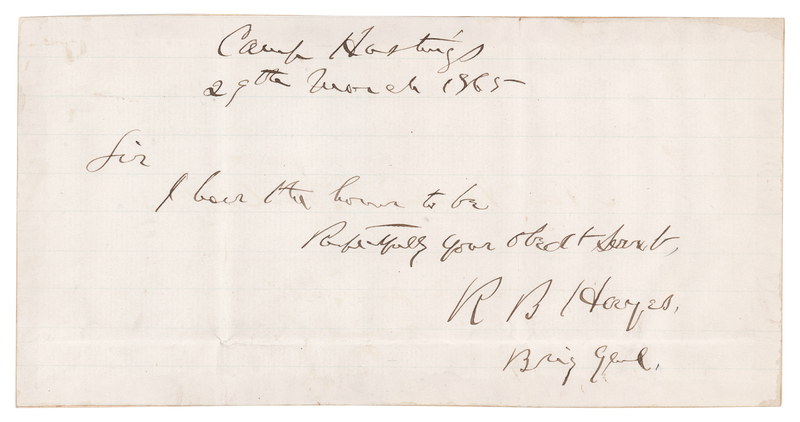 Camp Hastings
29th March 1865
Sir
I have the honor to be
Respectfully your obedt Servt,
R B Hayes,
Brig Genl.